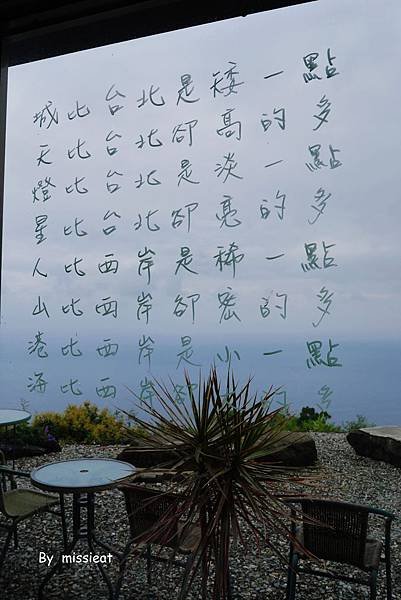 城比台北是矮一點
天比台北卻高的多
燈比台北是淡一點
星比台北卻亮的多
人比西岸是稀一點
山比西岸卻密的多
港比西岸是小一點
海比西岸卻的多
By missieat